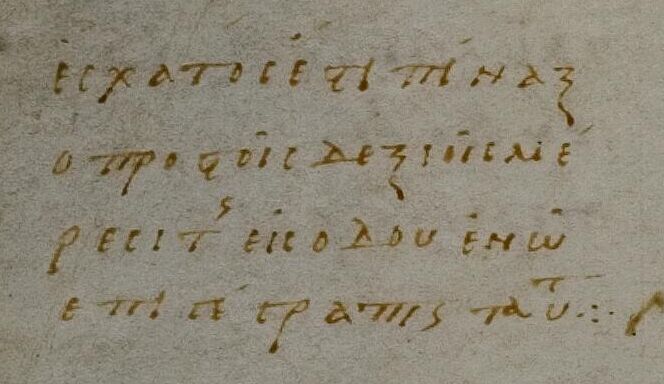 ἔσχατος ἐστὶ πίναξ
ὁ πρὸς τοῖς δεξιοῖς μέ
ρεσι τς εἰσόδου ἐν ὧ
ἐπιγέγραπται ταυτ :·